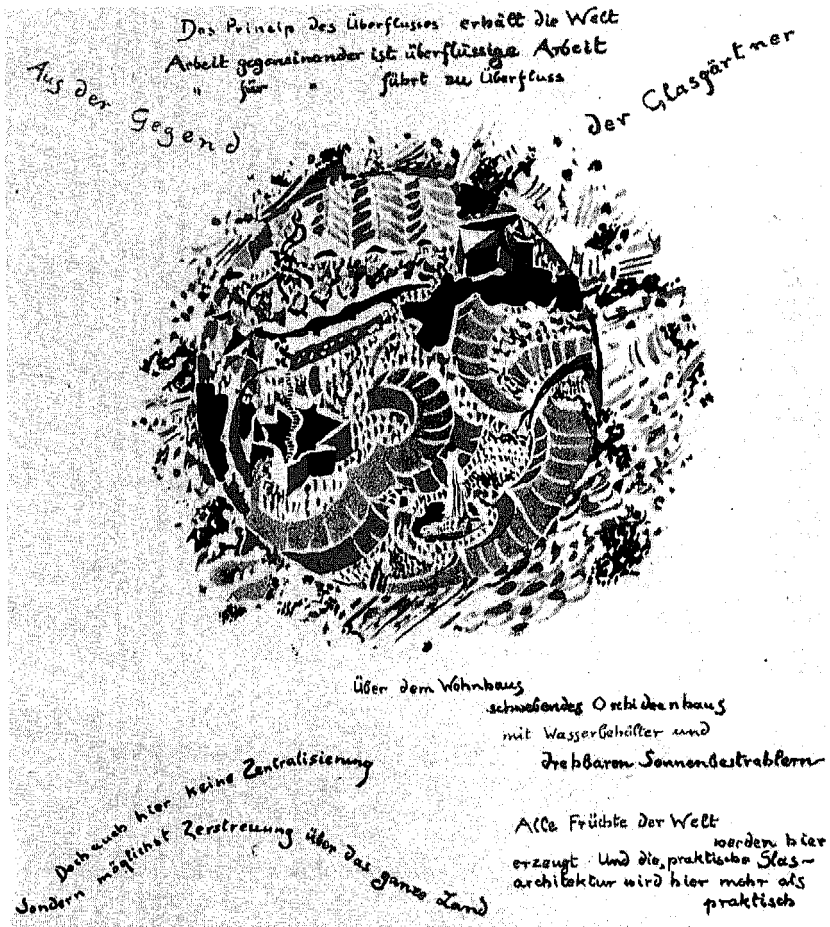 Das Prinzip des Überflusses erhält die Welt
Arbeit gegeneinander ist überflüssige Arbeit
" für " führt zu Überfluss
Aus der Gegend
der Glasgärtner
Über dem Wohnhaus
schwebendes Orchideenhaus
mit Wasserbehälter und
drehbaren Sonnenbestrahlern
Doch auch hier keine Zentralisierung
Sondern möglichst Zerstreuung über das ganze Land
Alle Früchte der Welt
werden hier
erzeugt Und die "praktische Glas-
architektur wird hier mehr als
praktisch